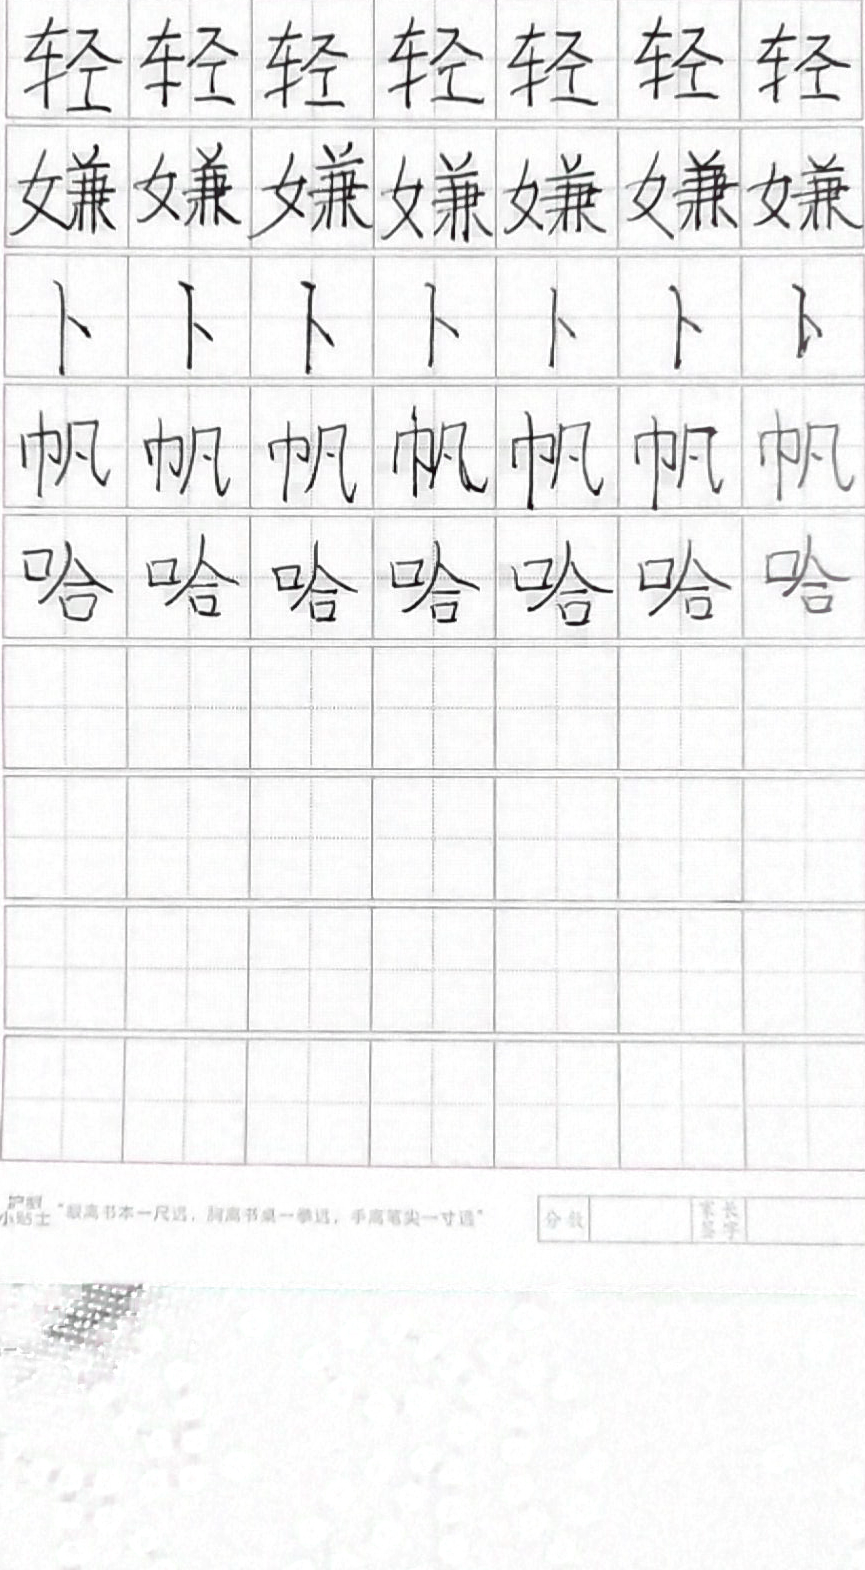 轻轻轻轻轻轻轻
嫌嫌嫌嫌嫌嫌嫌
卜卜卜卜卜卜卜
帆帆帆帆帆帆帆
哈哈哈哈哈哈哈
护眼小贴士 "眼离书本一尺远，胸离书桌一拳远，手离笔尖一寸远" 分数 家长签字